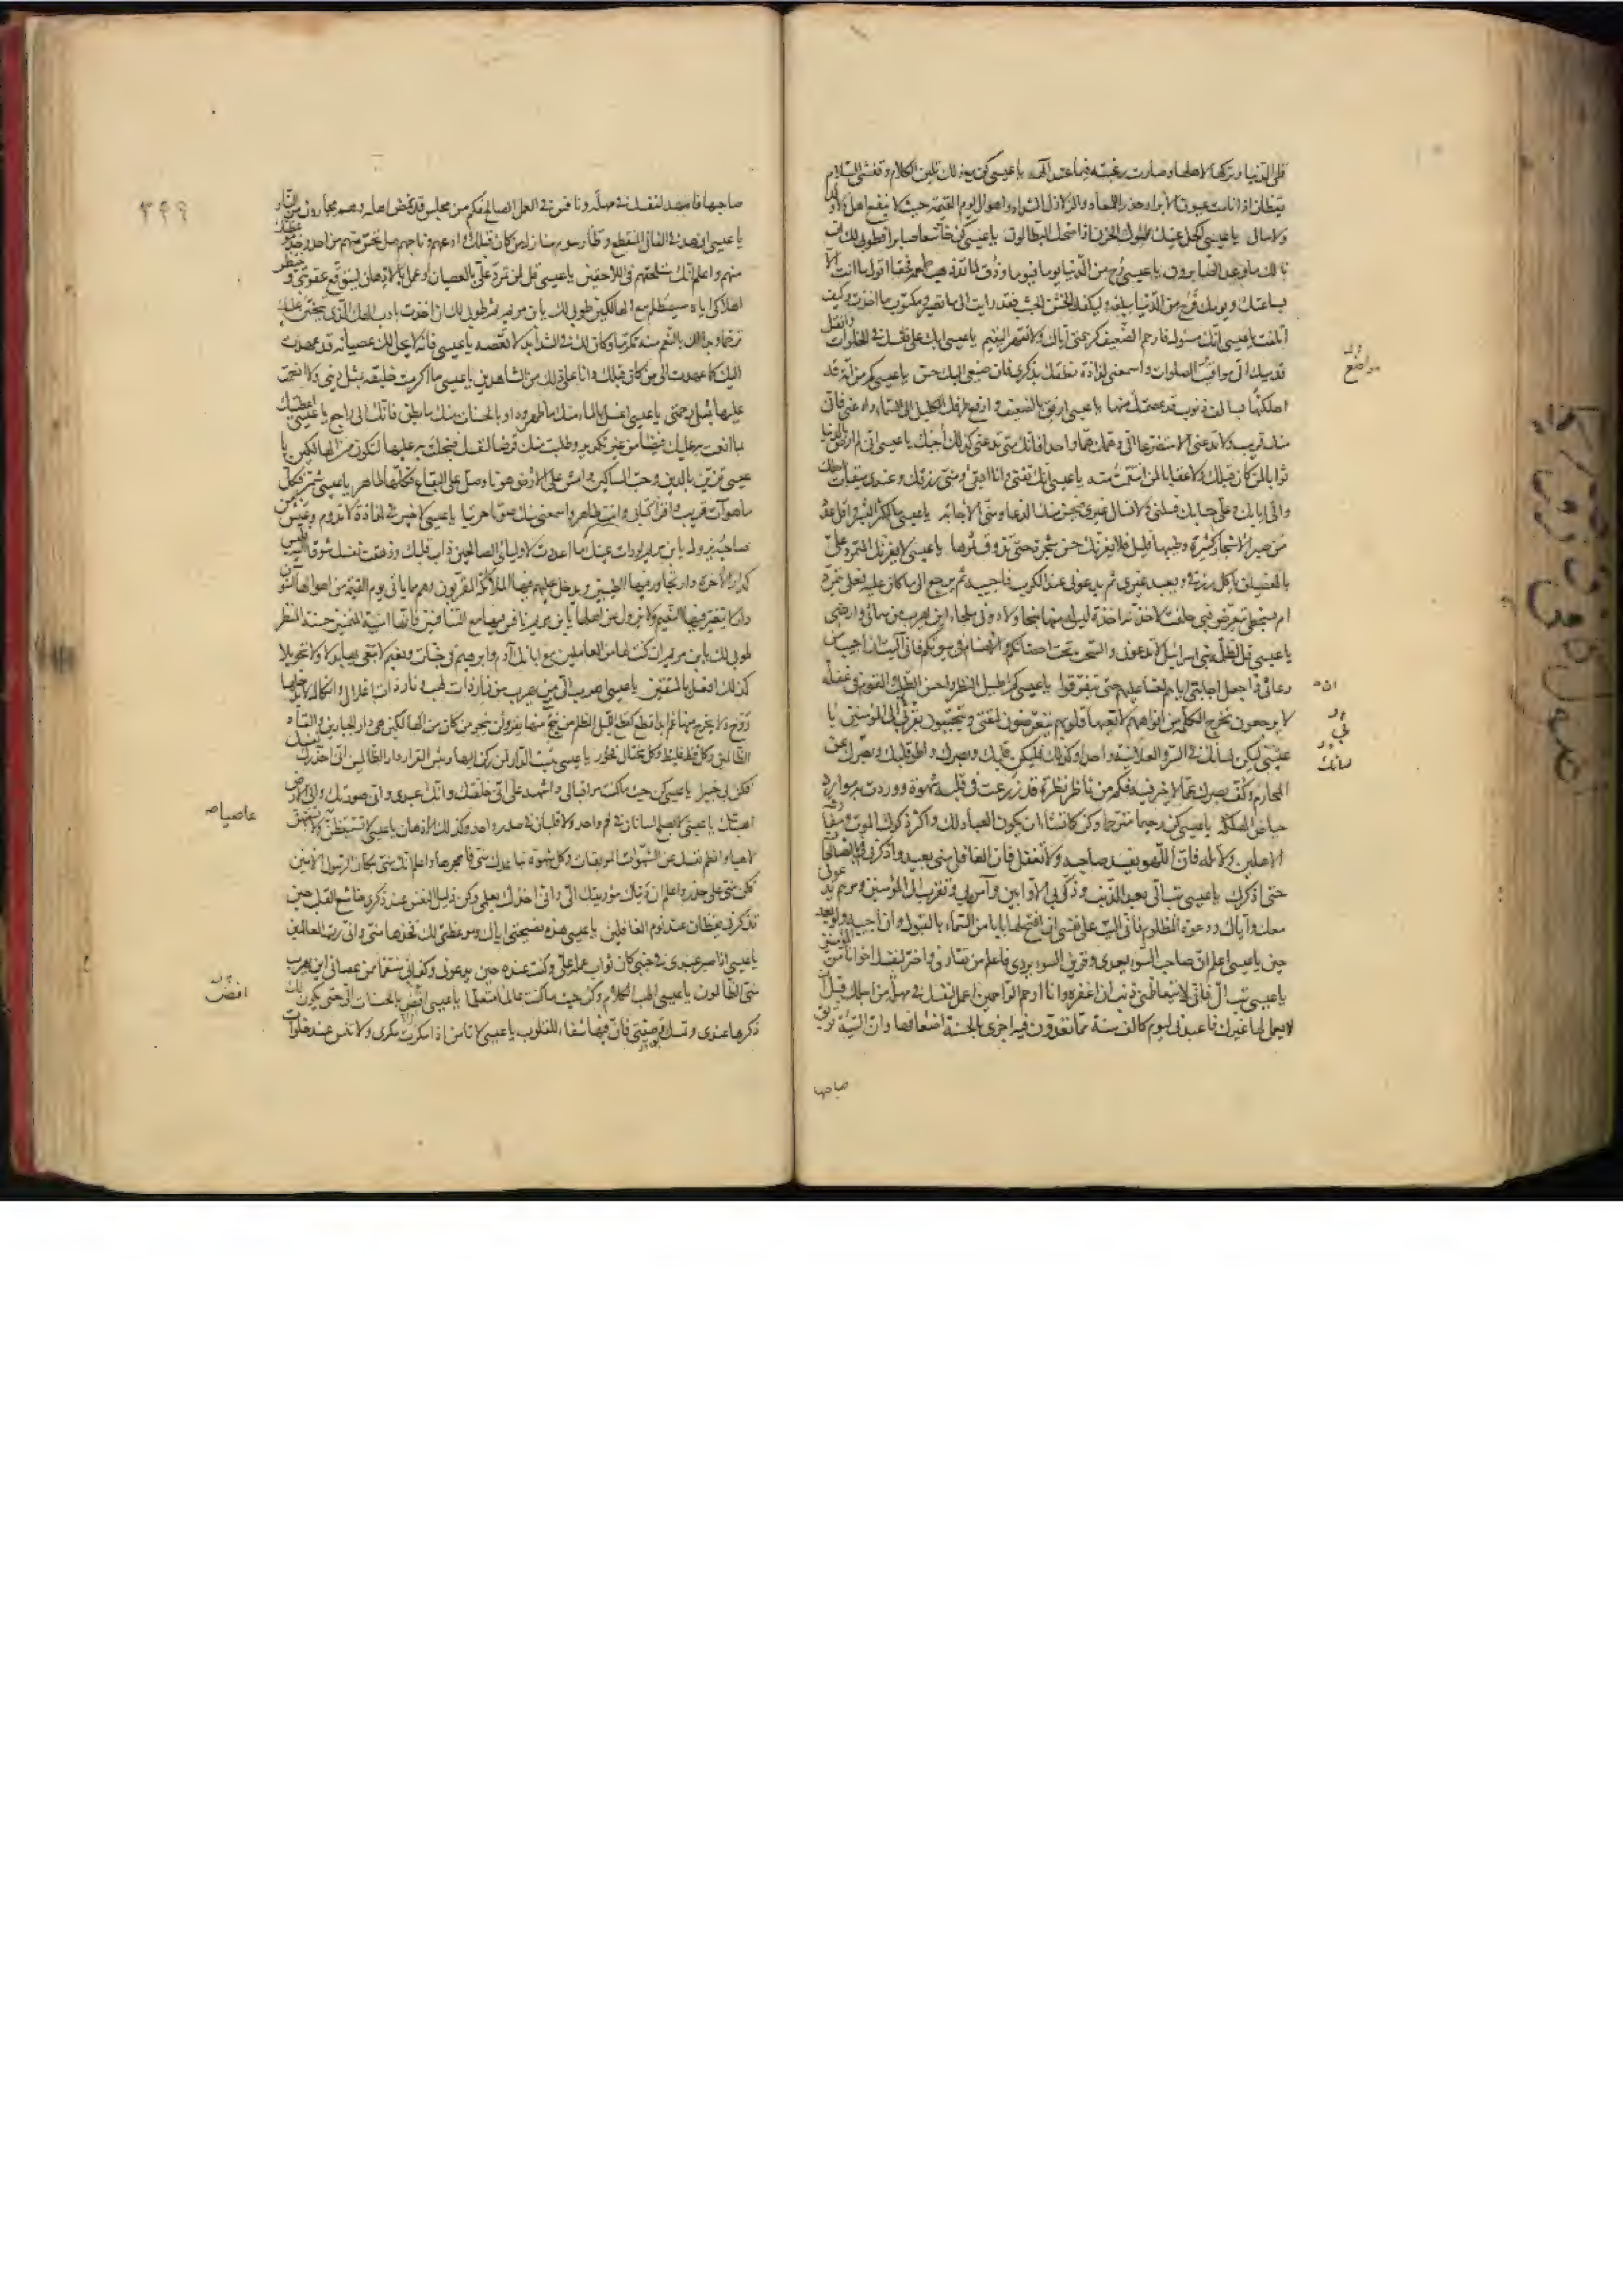 قلى الدنيا وتركها لاهلها وصارت رغبته فيما عند الهه يا عيسى كن مع ذلك تلين الكلام وتفشى السلام
يقظان اذا نامت عيون الابرار حذرا للمعاد والزلازل الشداد واهوال يوم القيمة حيث لا ينفع اهل ولا ولد
ولا مال يا عيسى اكحل عينك بميل الحزن اذا ضحك البطالون يا عيسى كن خاشعا صابرا فطوبى لك ان
نالك ما وعد الصابرون يا عيسى رح من الدنيا يوما فيوما وذق لما قد ذهب طعمه فحقا اقول ما انت الا
بساعتك ويومك فرح من الدنيا ببلغة وليكفك الخشن الجشب فقد رايت الى ما تصير ومكتوب ما اخذت وكيف
اتلفت يا عيسى انك مسئول فارحم الضعيف كرحمتى اياك ولا تقهر اليتيم يا عيسى ابك على نفسك فى الخلوات وانقل
قدميك الى مواقيت الصلوات واسمعنى لذاذة نطقك بذكرى فان صنيعى اليك حسن يا عيسى كم من امة قد
اهلكتها بسالف ذنوب قد عصمتك منها يا عيسى ارفق بالضعيف وارفع طرفك الكليل الى السماء وادعنى فانى
منك قريب ولا تدعنى الا متضرعا الى وهمك هما واحدا فانك متى تدعنى كذلك اجبك يا عيسى انى لم ارض بالدنيا
ثوابا لمن كان قبلك ولا عقابا لمن انتقمت منه يا عيسى انك تفنى وانا ابقى ومنى رزقك وعندى ميقات اجلك
والى ايابك وعلى حسابك فسلنى ولا تسأل غيرى فيحسن منك الدعا ومنى الاجابة يا عيسى ما اكثر البشر واقل عدد
من صبر الاشجار كثيرة وطيبها قليل فلا يغرنك حسن شجرة حتى تذوق ثمرها يا عيسى لا يغرنك المتمرد على
بالعصيان ياكل رزقى ويعبد غيرى ثم يدعونى عند الكرب فاجيبه ثم يرجع الى ما كان عليه فعلى يتمرد
ام بسخطى يتعرض فبى حلفت لاخذنه اخذة ليس له منها منجا ولا دونى ملجاء اين يهرب من سمائى وارضى
يا عيسى قل لظلمة بنى اسرائيل لا تدعونى والسحت تحت احضانكم والاصنام فى بيوتكم فانى آليت ان اجيب من
دعانى وان اجعل اجابتى اياهم لعنا عليهم حتى يتفرقوا يا عيسى كم اطيل النظر واحسن الطلب والقوم فى غفلة
لا يرجعون تخرج الكلمة من افواههم لا تعيها قلوبهم يتعرضون لمقتى ويتحببون بقربى الى المؤمنين يا
عيسى ليكن لسانك فى السر والعلانية واحدا وكذلك فليكن قلبك وبصرك واطو قلبك وبصرك عن
المحارم وكف بصرك عما لا خير فيه فكم من ناظر نظرة قد زرعت فى قلبه شهوة ووردت به موارد
حياض الهلكة يا عيسى كن رحيما مترحما وكن كما تشاء ان يكون العباد لك واكثر ذكرك الموت ومفارقة
الاهلين ولا تله فان اللهو يفسد صاحبه ولا تغفل فان الغافل منى بعيد واذكرنى بالصالحات
حتى اذكرك يا عيسى تب الى بعد الذنب وذكر بى الاوابين وآمن بى وتقرب الى المؤمنين ومرهم يدعونى
معك واياك ودعوة المظلوم فانى آليت على نفسى ان افتح لها بابا من السماء بالقبول وان اجيبه ولو بعد
حين يا عيسى اعلم ان صاحب السوء يعدى وقرين السوء يردى فاعلم من تقارن واختر لنفسك اخوانا من المؤمنين
يا عيسى تب الى فانى لا يتعاظمنى ذنب ان اغفره وانا ارحم الراحمين اعمل لنفسك فى مهلة من اجلك قبل ان
لا يعمل لها غيرك واعبدنى ليوم كالف سنة مما تعدون فيه اجزى بالحسنة اضعافها وان السيئة توبق
صاحبها
مواضع
لسانك
٣٤٩
صاحبها فامهد لنفسك فى مهلة ونافس فى العمل الصالح فكم من مجلس قد نهض اهله وهم مجارون من النار
يا عيسى ازهد فى الفانى المنقطع وطأ رسوم منازل من كان قبلك وادعهم وناجهم هل تحس منهم من احد وخذ موعظتك
منهم واعلم انك ستلحقهم فى اللاحقين يا عيسى قل لمن تمرد على بالعصيان وعمل بالادهان ليتوقع عقوبتى وينتظر
اهلاكى اياه سيصطلم مع الهالكين طوبى لك يا بن مريم ثم طوبى لك ان اخذت بادب الهك الذى يتحنن عليك
ترحما وبدأك بالنعم منه تكرما وكان لك فى الشدايد لا تعصه يا عيسى فانه لا يحل لك عصيانه قد عهدت
اليك كما عهدت الى من كان قبلك وانا على ذلك من الشاهدين يا عيسى ما اكرمت خليقة بمثل دينى ولا انعمت
عليها بمثل رحمتى يا عيسى اغسل بالماء منك ما ظهر وداو بالحسنات منك ما بطن فانك الى راجع يا عيسى اعطيتك
بما انعمت به عليك فيضا من غير تكدير وطلبت منك قرضا لنفسك فبخلت به عليها لتكون من الهالكين يا
عيسى تزين بالدين وحب المساكين وامش على الارض هونا وصل على البقاع فكلها طاهر يا عيسى شمر فكل
ما هو آت قريب واقرأ كتابى وانت طاهر واسمعنى منك صوتا حزينا يا عيسى لا خير فى لذاذة لا تدوم وعيش من
صاحبه يزول يا بن مريم لو رات عينك ما اعددت لاوليائى الصالحين ذاب قلبك وزهقت نفسك شوقا اليه فليس
كدار الاخرة دار تجاور فيها الطيبين ويدخل عليهم فيها الملائكة المقربون وهم مما ياتى يوم القيمة من اهوالها آمنون
دار لا يتغير فيها النعيم ولا يزول عن اهلها يا بن مريم نافس فيها مع المتنافسين فانها امنية المتمنين حسنة المنظر
طوبى لك يا بن مريم ان كنت لها من العاملين مع ابائك آدم وابرهيم فى جنات ونعيم لا تبغى بها بدلا ولا تحويلا
كذلك افعل بالمتقين يا عيسى اهرب الى مع من يهرب من نار ذات لهب ونار ذات اغلال وانكال لا يدخلها
روح ولا يخرج منها غم ابدا قطع كقطع الليل المظلم من ينج منها يفز ولن ينجو من كان من الهالكين هى دار الجبارين والعتاة
الظالمين وكل فظ غليظ وكل مختال فخور يا عيسى بئست الدار لمن ركن اليها وبئس القرار دار الظالمين انى احذرك نفسك
فكن بى خبيرا يا عيسى كن حيث ما كنت مراقبا لى واشهد على انى خلقتك وانك عبدى وانى صورتك والى الارض
اهبطتك يا عيسى لا يصلح لسانان فى فم واحد ولا قلبان فى صدر واحد وكذلك الاذهان يا عيسى لا تستيقظن
لاهيا وافطم نفسك عن الشهوات الموبقات وكل شهوة تباعدك منى فاهجرها واعلم انك منى بمكان الرسول الامين
فكن منى على حذر واعلم ان دنياك مؤديتك الى وانى اخذك بعلمى وكن ذليل النفس عند ذكرى خاشع القلب حين
تذكرنى يقظان عند نوم الغافلين يا عيسى هذه نصيحتى اياك وموعظتى لك فخذها منى وانى رب العالمين
يا عيسى اذا صبر عبدى فى جنبى كان ثواب عمله على وكنت عنده حين يدعونى وكفى بى منتقما ممن عصانى اين يهرب
منى الظالمون يا عيسى اطب الكلام وكن حيث ما كنت عالما متعلما يا عيسى افض بالحسنات الى حتى يكون لك
ذكرها عندى وتمسك بوصيتى فان فيها شفاء للقلوب يا عيسى لا تامن اذا مكرت مكرى ولا تنس عند خلوات
عاصيا